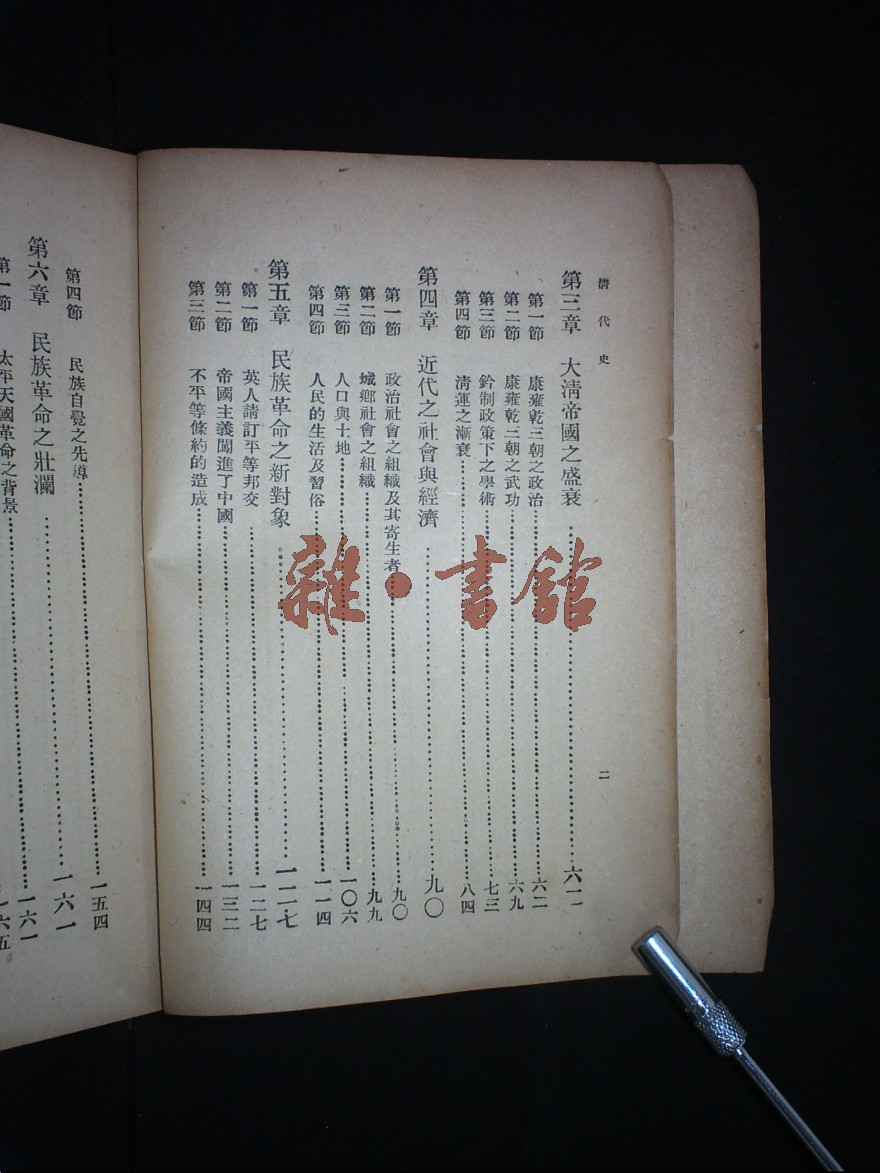 清代史
二
第三章 大清帝國之盛衰 六二
第一節 康雍乾三朝之政治 六二
第二節 康雍乾二朝之武功 六九
第三節 鈐制政策下之學術 七三
第四節 清運之漸衰 八四
第四章 近代之社會與經濟 九〇
第一節 政治社會之組織及其寄生者 九〇
第二節 城鄉社會之組織 九九
第三節 人口與土地 一〇六
第四節 人民的生活及習俗 一一四
第五章 民族革命之新對象 一二七
第一節 英人請訂平等邦交 一二七
第二節 帝國主義闖進了中國 一三二
第三節 不平等條約的造成 一四四
第四節 民族自覺之先導 一五四
第六章 民族革命之壯瀾 一六一
第一節 太平天國革命之背景 一六一
一六五
雜·書館